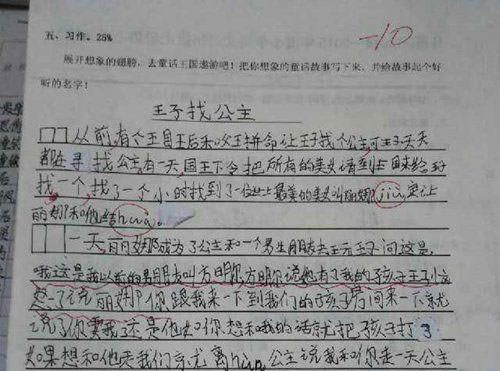 五、习作。28%
-10
展开想象的翅膀，去童话王国遨游吧！把你想象的童话故事写下来，并给故事起个好
听的名字！
王子找公主
从前,有个王国王后和次王拼命让王子找个公主可王子天天
都在寻找公主,有一天,国王下令把所有的美女请到 来给王子
找一个,找了一个小时找到了一位世上最美的美女叫丽娜,jiu 让
丽娜和他结hun。
一天丽娜成为了公主和一个男生朋友去玩王子问这是,
哦这是我以前的男朋友叫方明,方明说她有了我的孩子王子
说丽娜,你跟我来一下到我们的孩子房间来一下就
说了你要我这是他 你,想和我的话就把孩子打了
如果想和他 我们就离hun,公主说我和你走一天公主